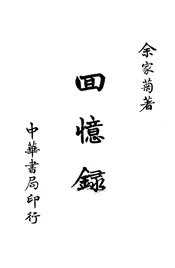 余家菊著
回憶録
中華書局印行